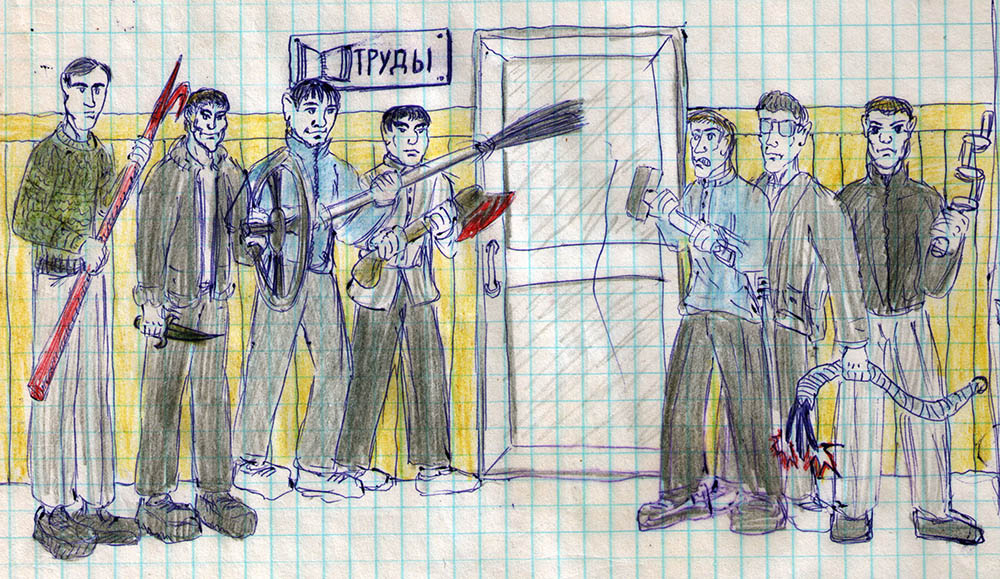 ТРУДЫ